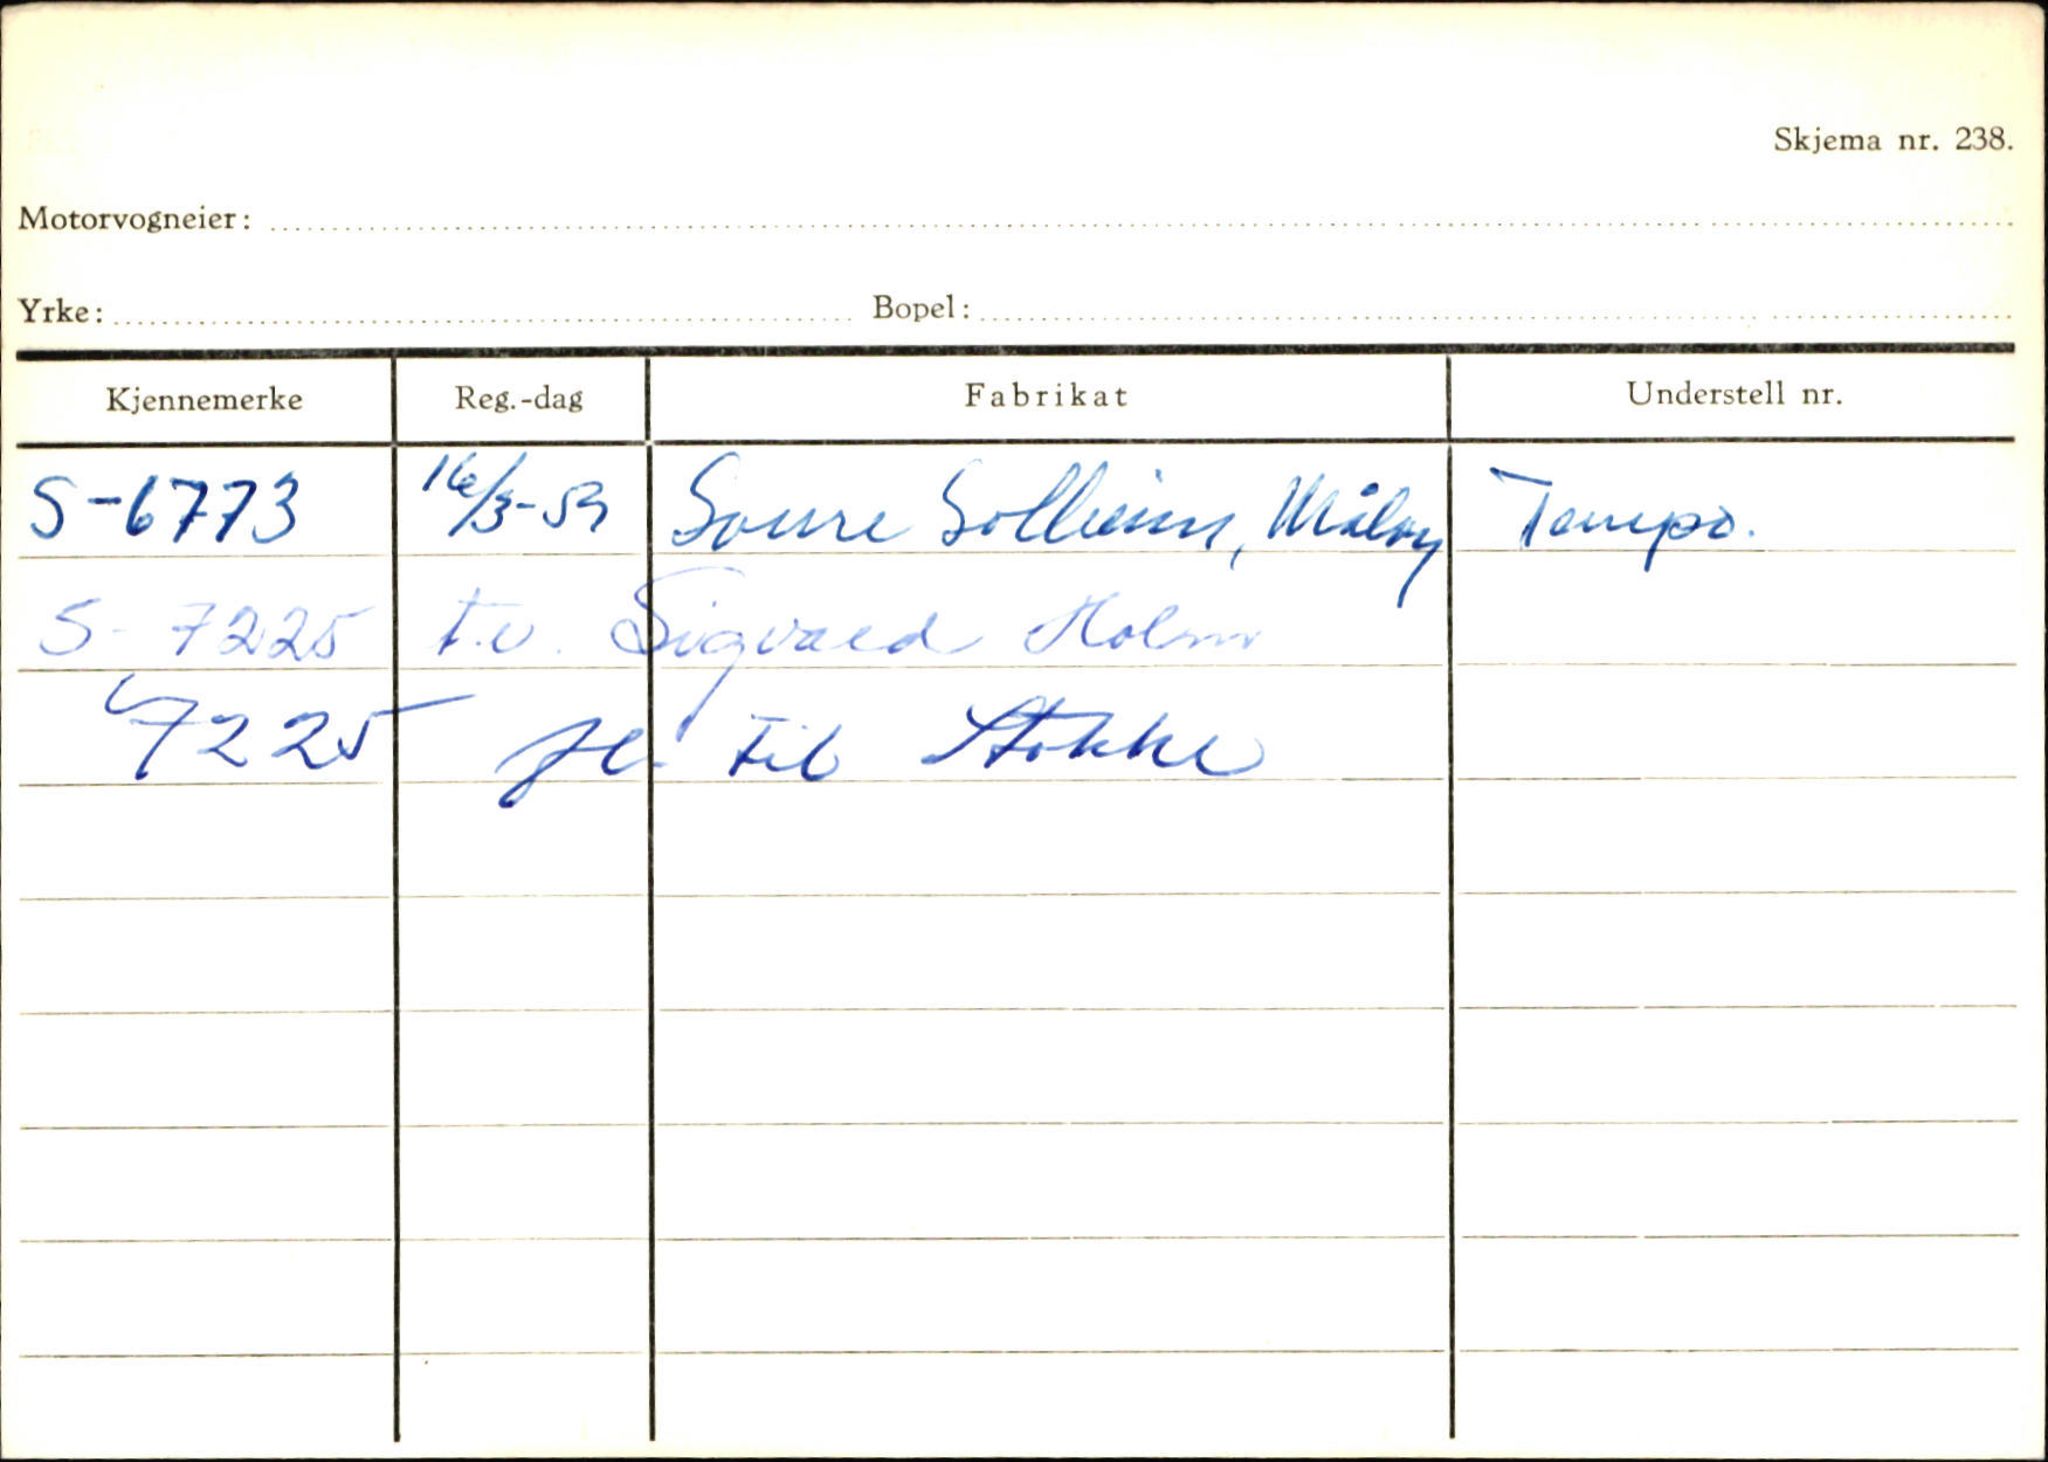 Skjema nr. 238.
Motorvogneier:
Yrke: Bopel:
Kjennemerke Reg.-dag Fabrikat Understell nr.
S-6773 16/3-59 Solheim, Måløy Tempo.
S-7225 t.v. Sigvald Holm
7225 fl. til Stokke